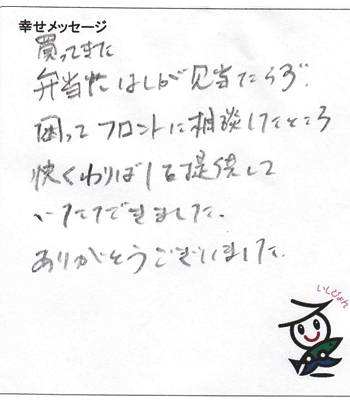 幸せメッセージ
買ってきた
弁当にはしが見当たらず、
困ってフロントに相談したところ
快くわりばしを提供して
いただきました。
ありがとうございました。
いしぴょん